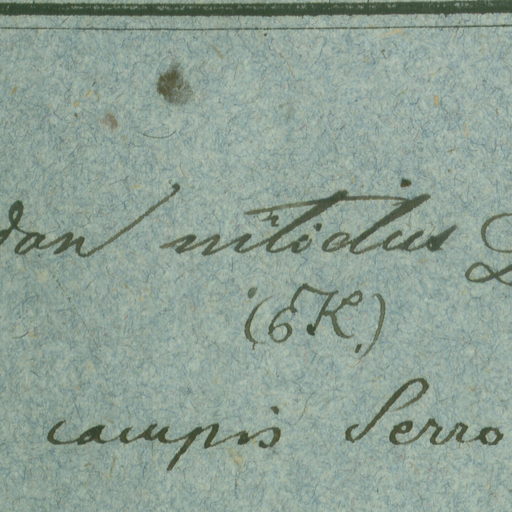 dan nitidus
(6K.)
campis Serro